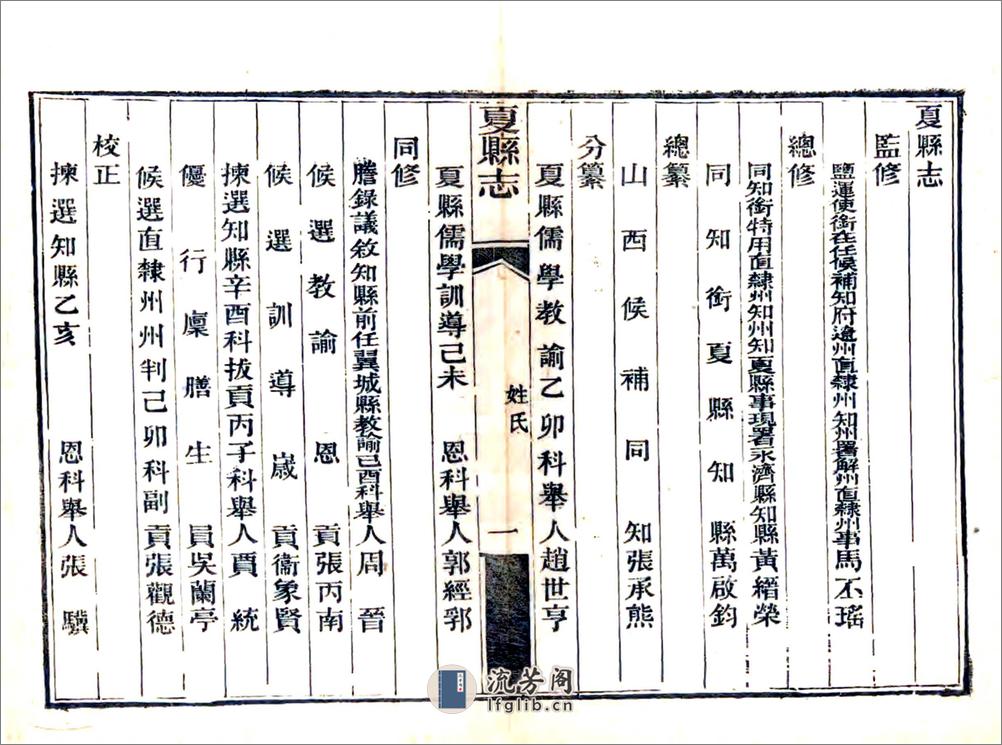 夏縣志
監修
鹽運使銜在任候補知府遼州直隸州知州署解州直隸州事馬丕瑤
總修
同知銜特用直隸州知州知夏縣事現署永濟縣知縣黃縉榮
同知銜夏縣知縣萬啟鈞
總纂
山西候補同知張承熊
分纂
夏縣儒學教諭乙卯科舉人趙世亨
夏縣志
姓氏
一
夏縣儒學訓導己未 恩科舉人郭經郛
同修
謄錄議敘知縣前任翼城縣教諭己酉科舉人周晉
候選教諭恩貢張丙南
候選訓導歲貢衞象賢
揀選知縣辛酉科拔貢丙子科舉人賈統
優行廩膳生員吳蘭亭
候選直隸州州判己卯科副貢張觀德
校正
揀選知縣乙亥 恩科舉人張驥
流芳阁
lfglib.cn